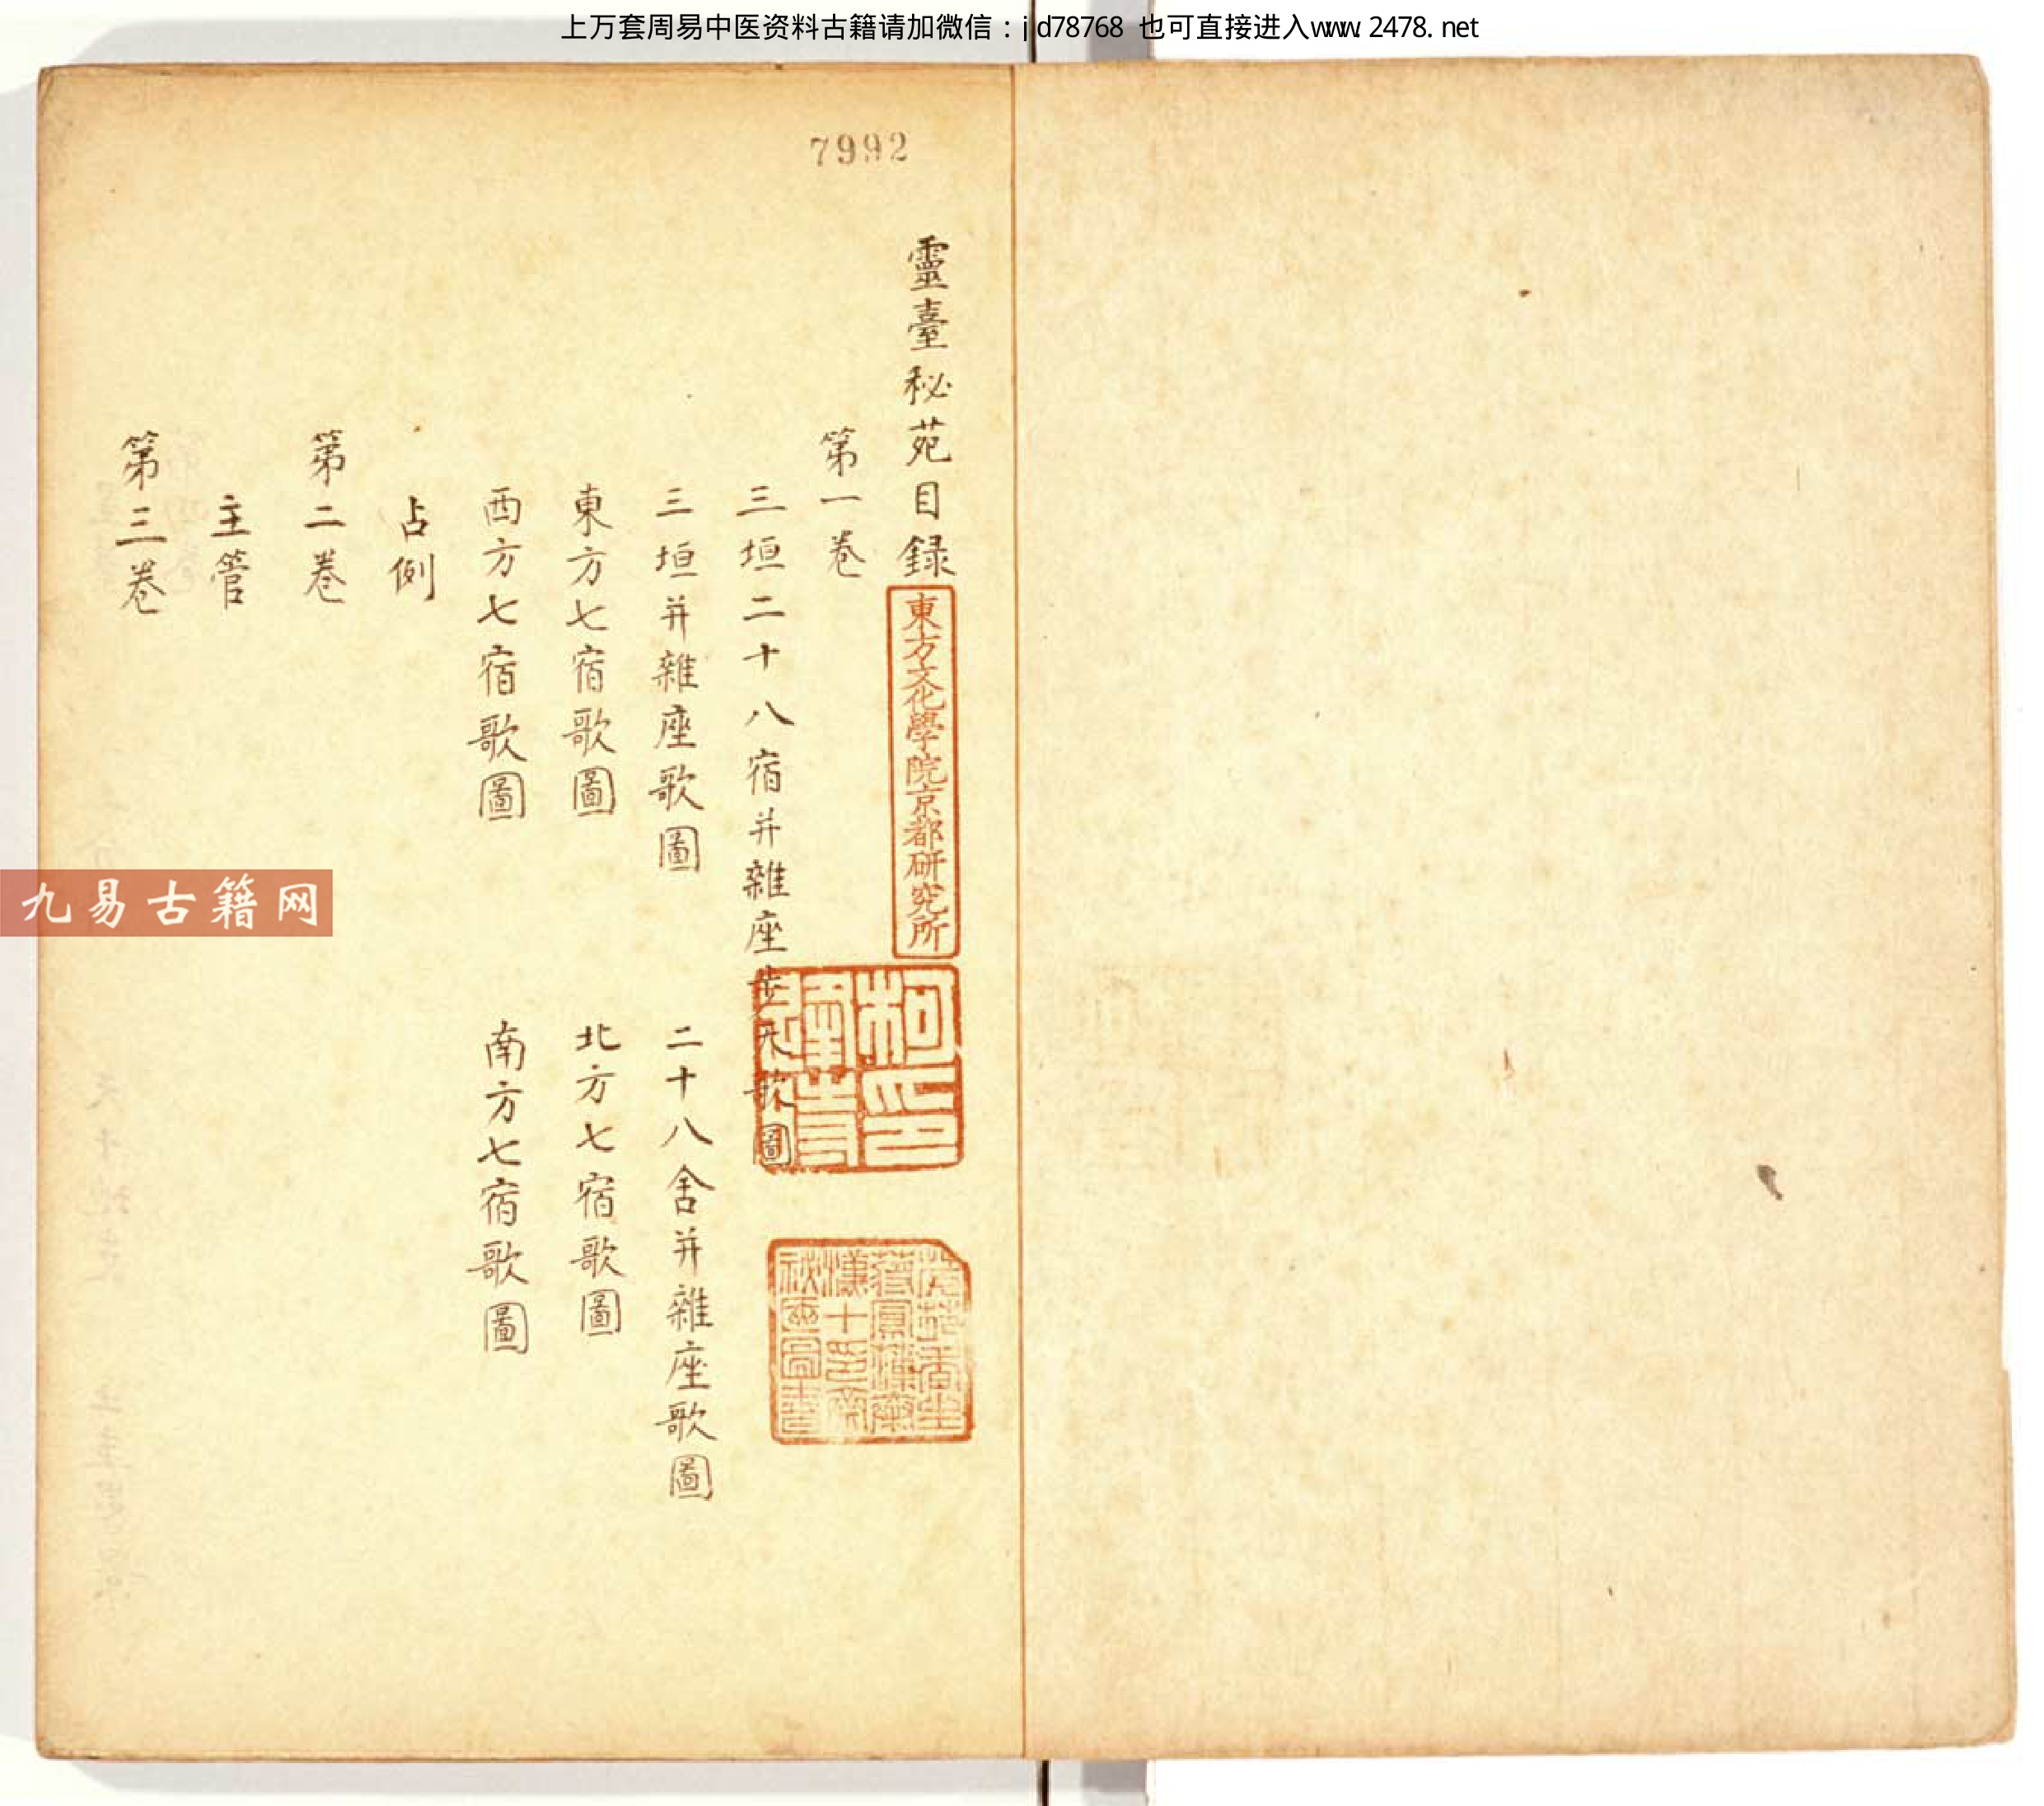 上万套周易中医资料古籍请加微信：jd78768 也可直接进入www.2478.net
7992
靈臺秘苑目録
東方文化學院京都研究所
柯印
第一卷
三垣二十八宿并雜座步天歌圖
三垣并雜座歌圖 二十八舍并雜座歌圖
東方七宿歌圖 北方七宿歌圖
西方七宿歌圖 南方七宿歌圖
占例
第二卷
主管
第三卷
九易古籍网